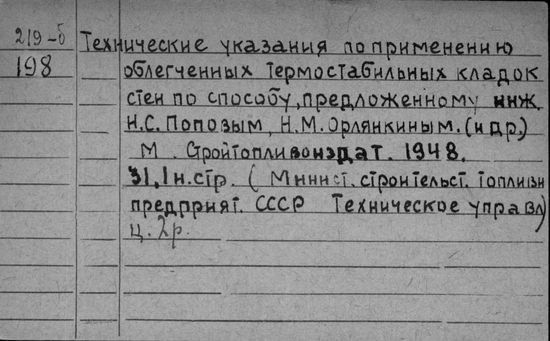 219-б Технические указания по применению
198 облегченных термостабильных кладок
стен по способу, предложенному инж.
Н.С. Поповым, Н.М. Орлянкиным. (и др.)
М. Стройтопливоиздат. 1948.
31, 1 н.стр. (Минист. строительст. топливн
предприят. СССР Техническое управл)
ц. 2р.